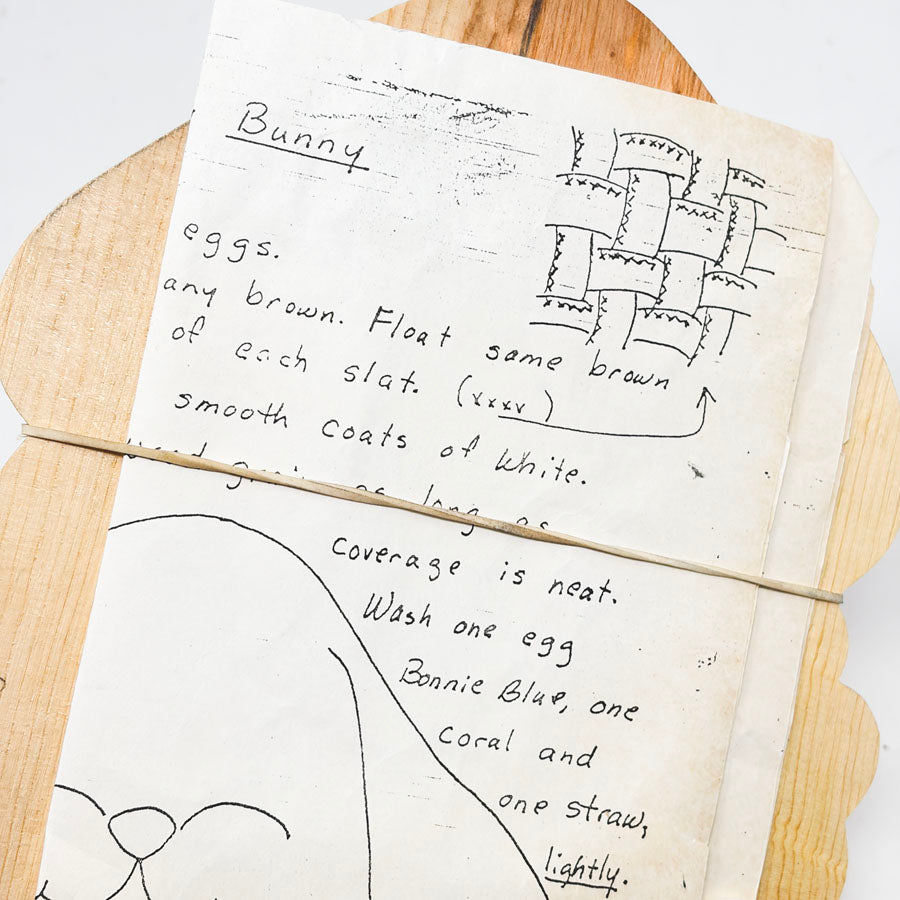 Bunny
eggs.
any brown. Float same brown
of each slat. (xxxx)
smooth coats of White.
as long as
coverage is neat.
Wash one egg
Bonnie Blue, one
coral and
one straw,
lightly.